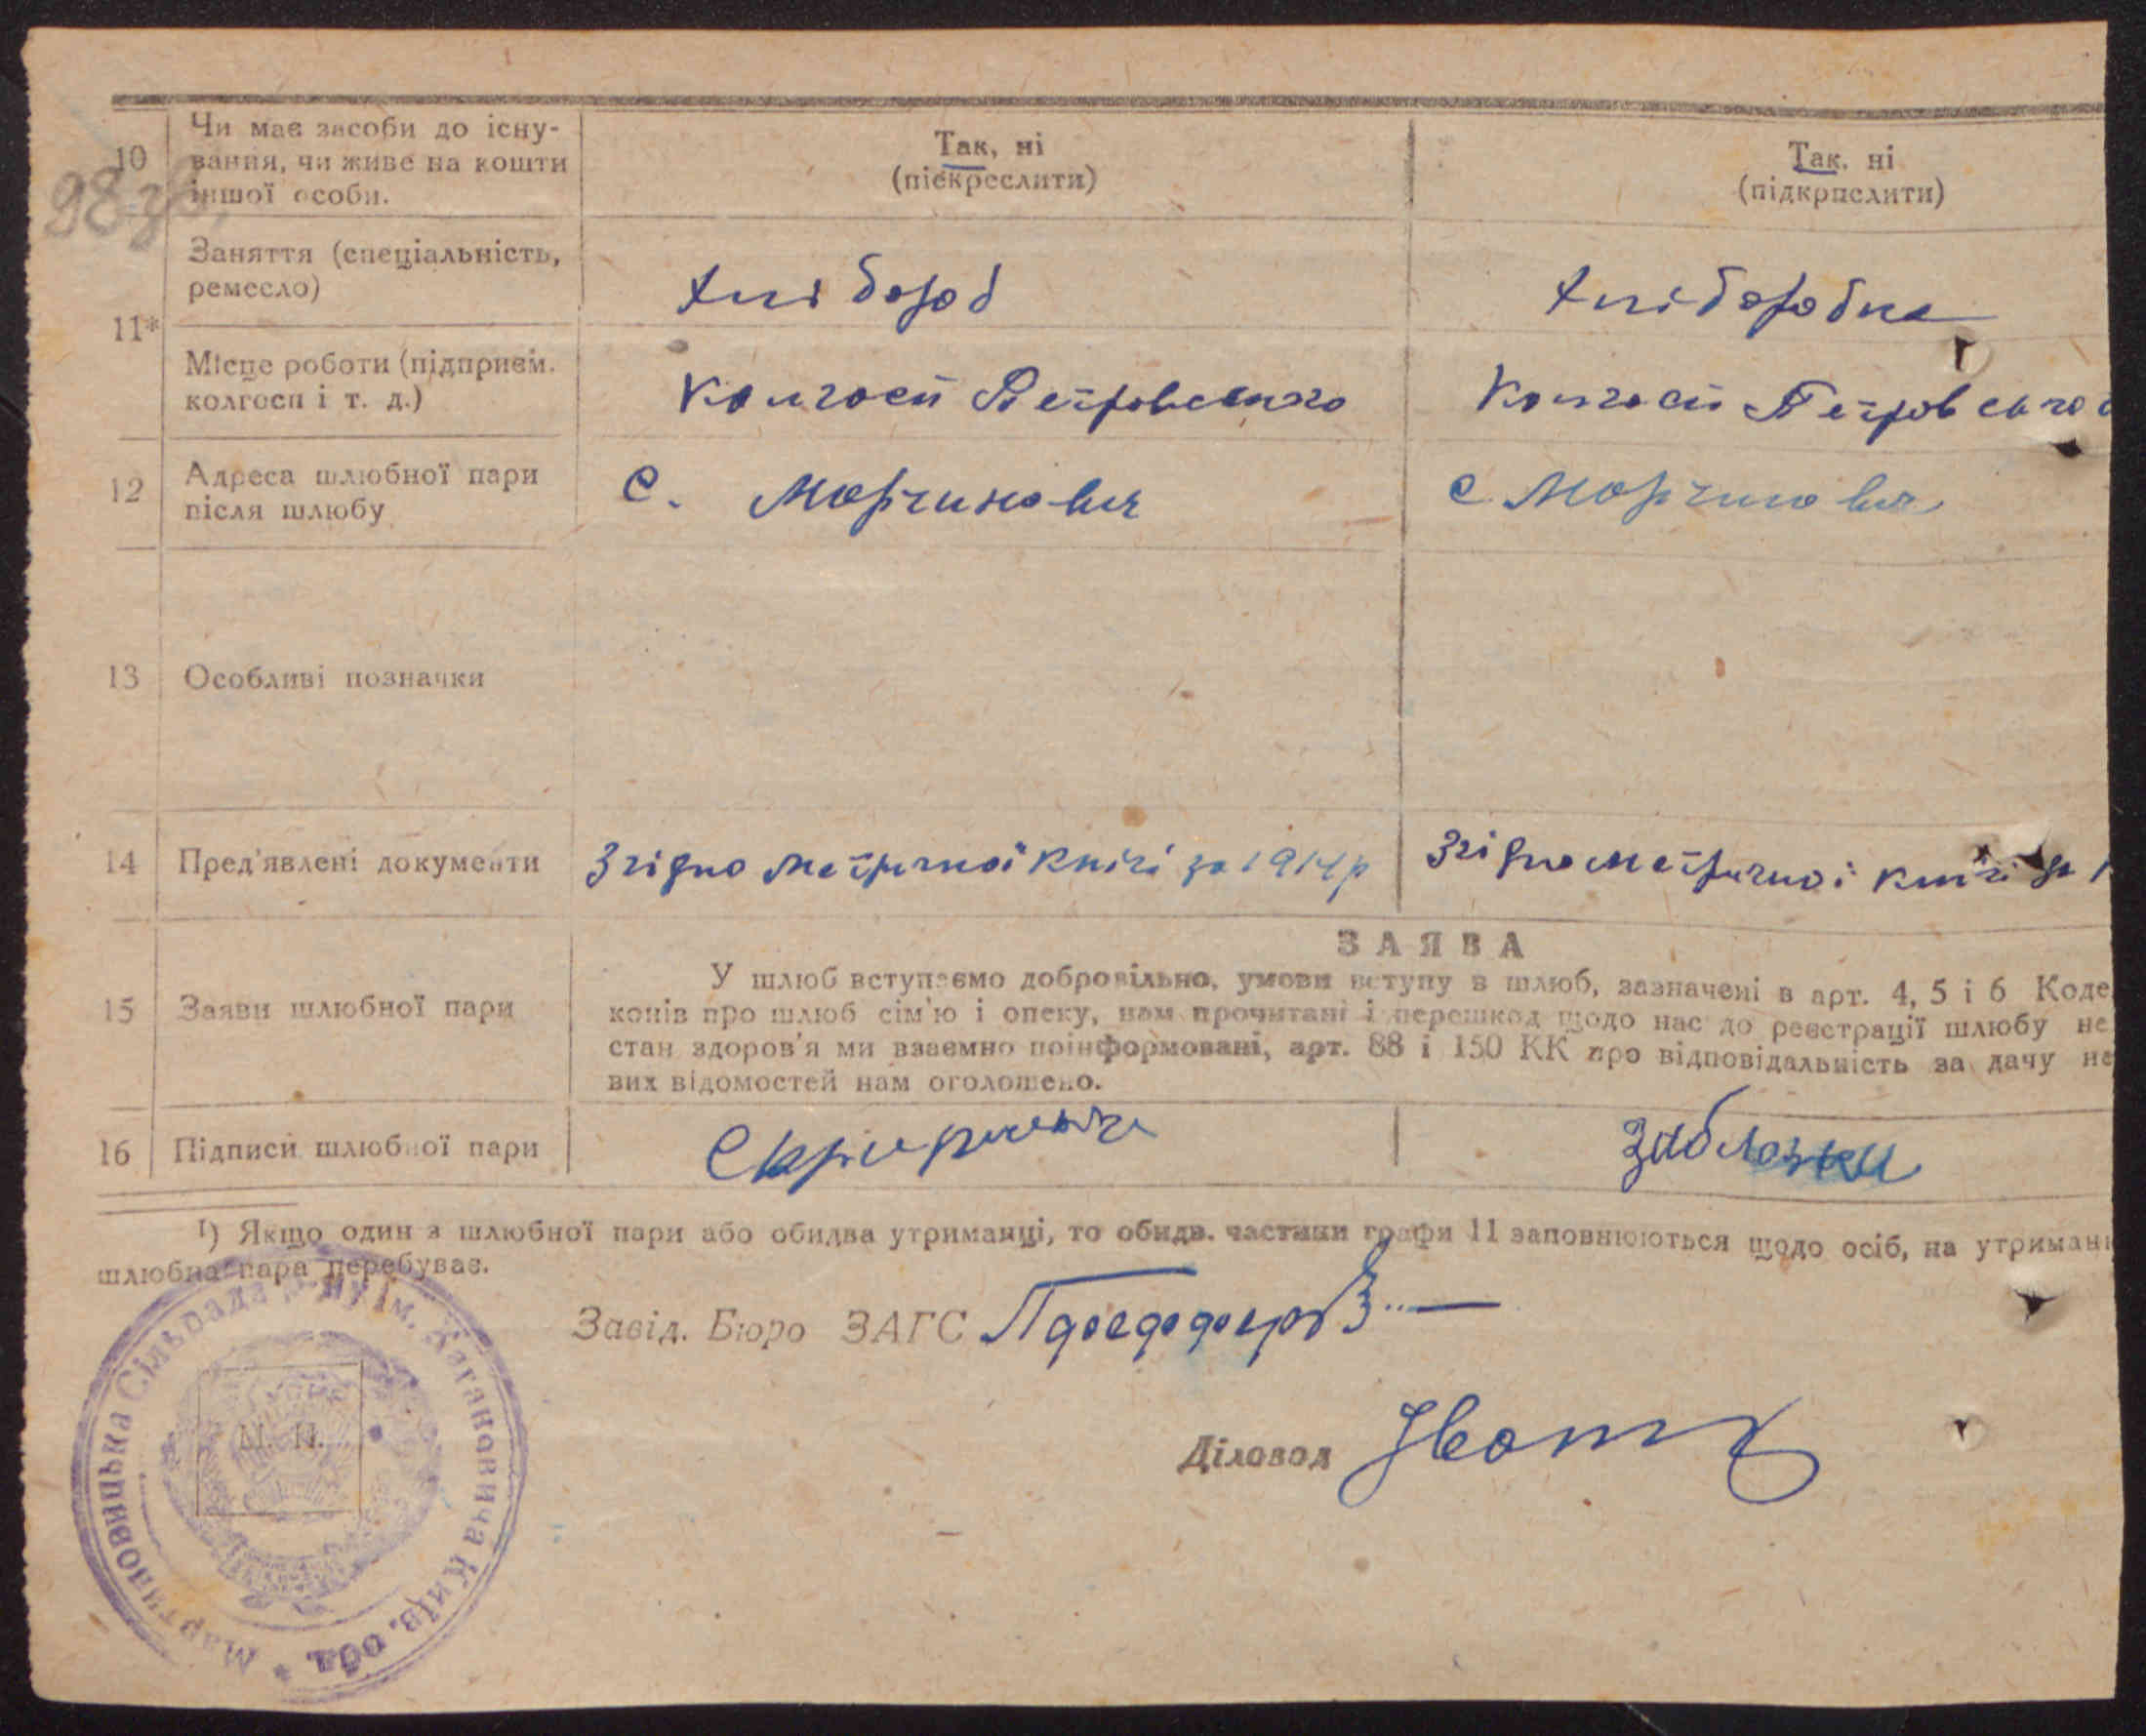 98 зв.
10
Чи має засоби до існу-
вання, чи живе на кошти
іншої особи.
Так, ні
(піекреслити)
Так, ні
(підкрпслити)
11*
Заняття (спеціальність,
ремесло)
Хлібороб
Хліборобка
Місце роботи (підприєм.
колгосп і т. д.)
Колгосп Петровського
Колгосп Петровського
12
Адреса шлюбної пари
після шлюбу
с. Мартинович
с Мартинович
13
Особливі позначки
14
Пред'явлені документи
Згідно метричної кнігі за 1914р
Згідно метричної кнігі за 1
15
Заяви шлюбної пари
ЗАЯВА
У шлюб вступаємо добровільно, умови вступу в шлюб, зазначені в арт. 4, 5 і 6 Коде
конів про шлюб сім'ю і опеку, нам прочитані і перешкод щодо нас до реєстрації шлюбу не
стан здоров'я ми взаємно поінформовані, арт. 88 і 150 КК про відповідальність за дачу не
вих відомостей нам оголошено.
16
Підписи шлюбної пари
1) Якщо один з шлюбної пари або обидва утриманці, то обидв. частини графи 11 заповнюються щодо осіб, на утриман
шлюбна пара перебуває.
Завід. Бюро ЗАГС
Діловод
М. П.
Мартиновицька Сільрада р-ну ім. Кагановича Київ. обл. *